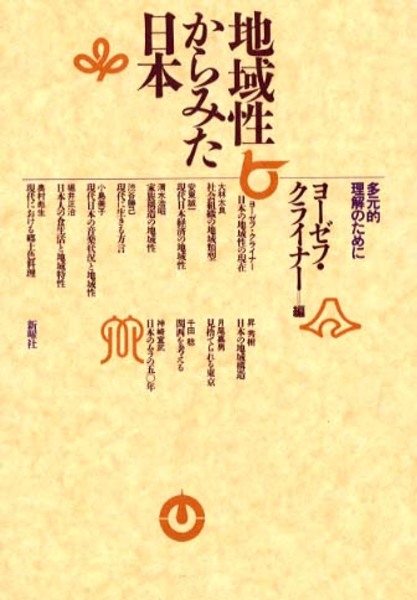 地域性
からみた
日本
多元的
理解のために
ヨーゼフ・
クライナー=編
ヨーゼフ・クライナー
日本の地域性の現在
大林太良
社会組織の地域類型
安東誠一
現代日本経済の地域性
清水浩昭
家族構造の地域性
渋谷勝己
現代に生きる方言
小島美子
現代日本の音楽状況と地域性
堀井正治
日本人の食生活と地域特性
奥村彪生
現代における郷土(色)料理
昇 秀樹
日本の地域構造
月尾嘉男
見捨てられる東京
千田 稔
関西を考える
神崎宣武
日本のムラの五〇年
新曜社